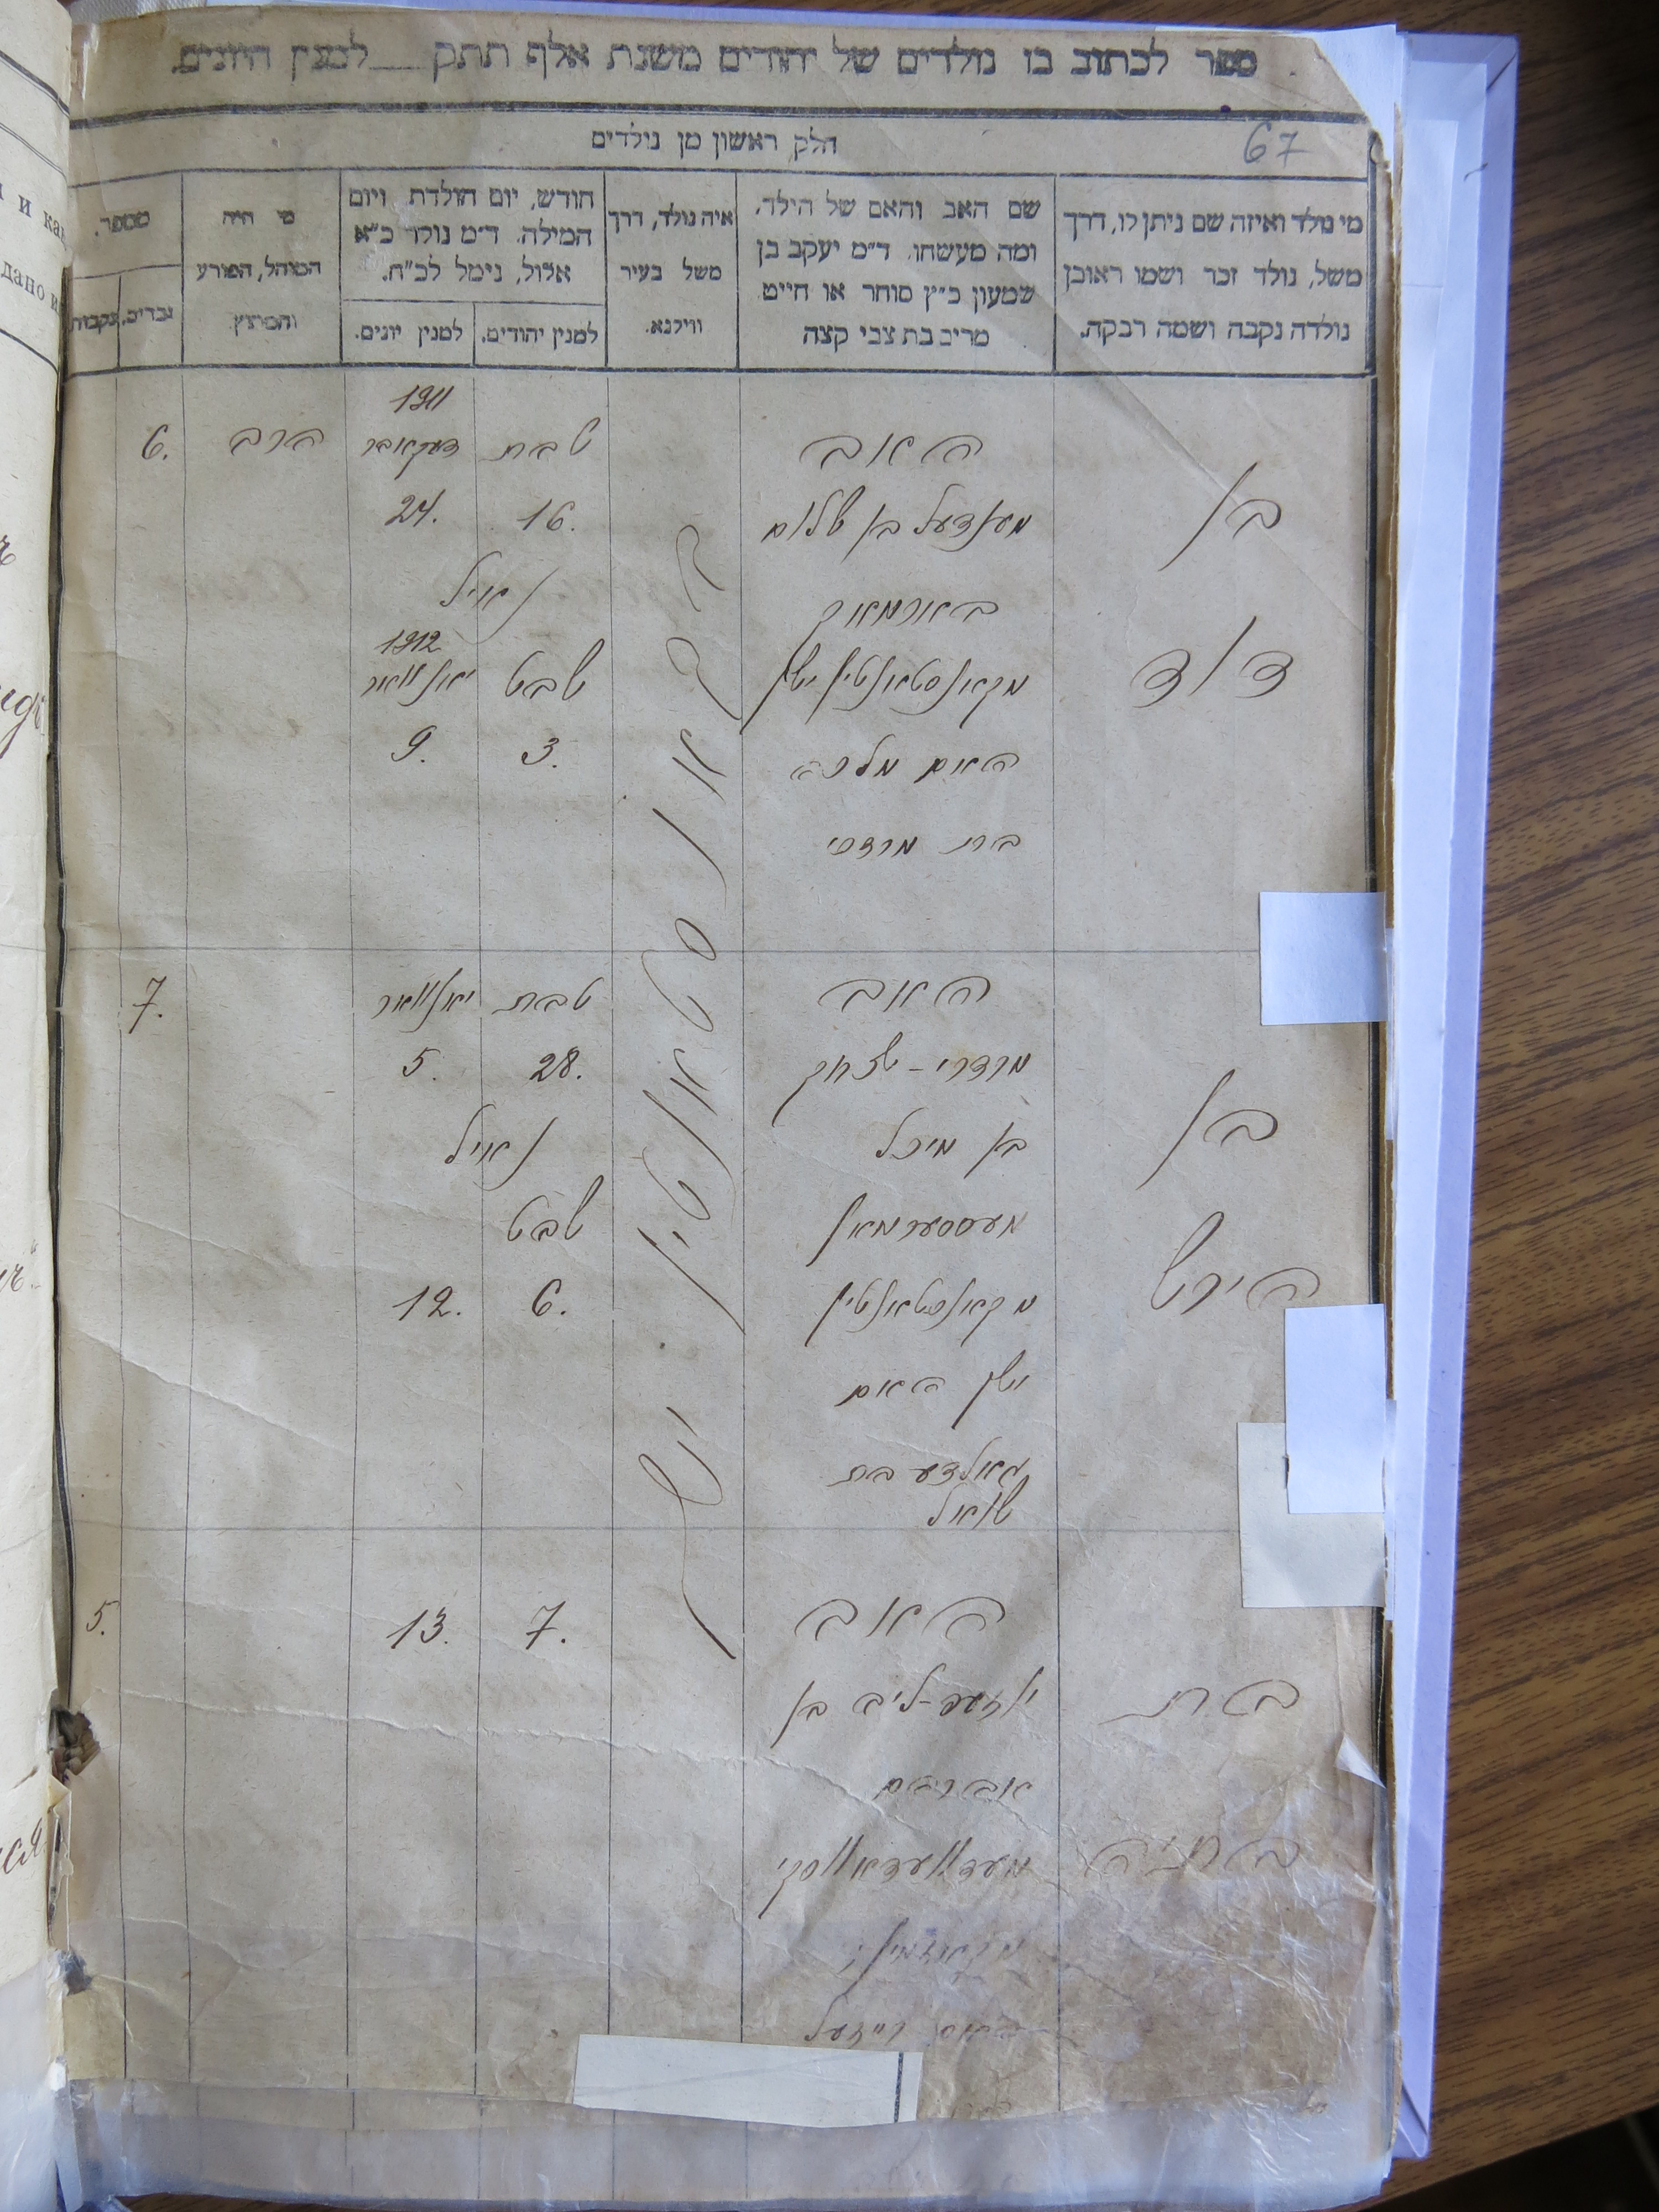 ספר לכתוב בו נולדים של יהודים משנת אלף תתק __ למנין היונים.
67
חלק ראשון מן נולדים
מי נולד ואיזה שם ניתן לו, דרך
משל, נולד זכר ושמו ראובן
נולדה נקבה ושמה רבקה.
שם האב והאם של הילד,
ומה מעשהו. ד"מ יעקב בן
שמעון כ"ץ סוחר או חייט
מרים בת צבי קצה
איה נולד, דרך
משל בעיר
ווילנא.
חודש, יום הולדת ויום
המילה. ד"מ נולד כ"א
אלול, נימל לכ"ח.
למנין יהודים.
למנין יונים.
מי היה
המוהל, הפורע
והמוצץ
מספר.
זכרים.
נקבות.
בן
דוד
האב
מענדעל בן שלום
בארמאק
מקאנסטאנטין ישן
האם מלכה
בת מרדכי
קאנסטאנטין
ישן
טבת
16.
1911
דעקאבר
24.
נאויל
שבט
3.
1912
יאנוואר
9.
הרב
6.
בן
הירש
האב
מרדכי - יצחק
בן מיכל
מעססערמאן
מקאנסטאנטין
ישן האם
גאלדע בת
שאול
טבת
28.
יאנוואר
5.
נאויל
שבט
6.
12.
7.
בת
בתיה
האב
יאסעפ-ליב בן
אברהם
מעדוועדאווסקי
האם רייזעל
7.
13.
5.